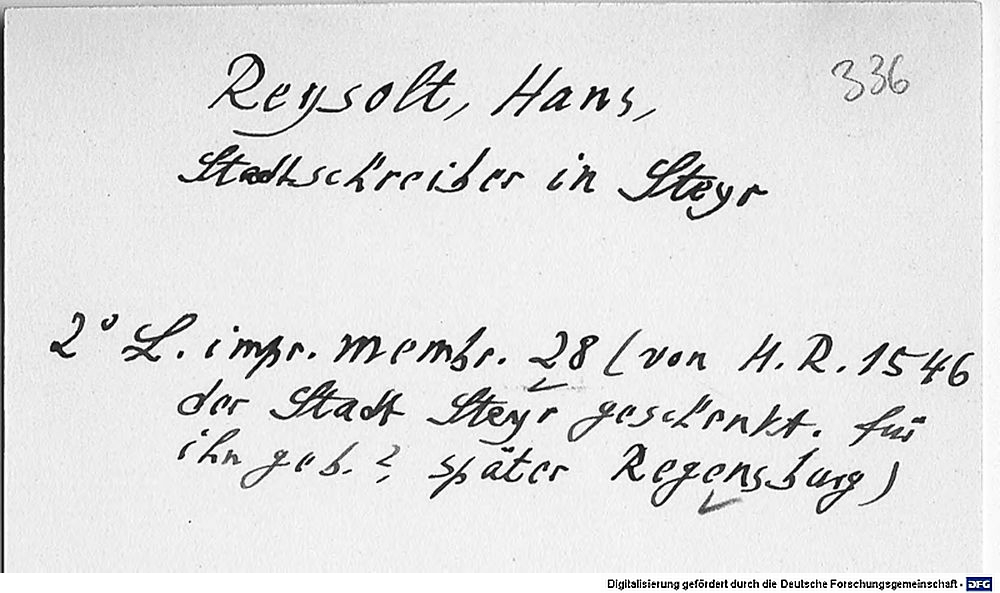 Reysolt, Hans,
336
Stadtschreiber in Steyr
2° L. impr. membr. 28 (von H. R. 1546
der Stadt Steyr geschenkt. für
ihn geb.?, später Regensburg)
Digitalisierung gefördert durch die Deutsche Forschungsgemeinschaft - DFG